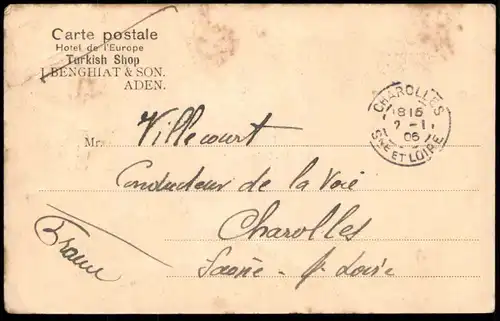 Carte postale
Hotel de l'Europe
Turkish Shop
J. BENGHIAT & SON.
ADEN.
CHAROLLES
1815
2 - 1
06
SNE ET LOIRE
Mr. Villecourt
Conducteur de la Voie
Charolles
Saône - & Loire
France